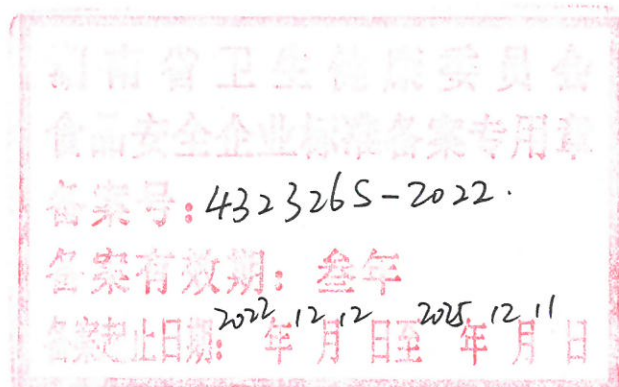 湖南省卫生健康委员会
食品安全企业标准备案专用章
备案号:4323265-2022.
备案有效期:叁年
备案起止日期:2022年12月12日至2025年12月11日